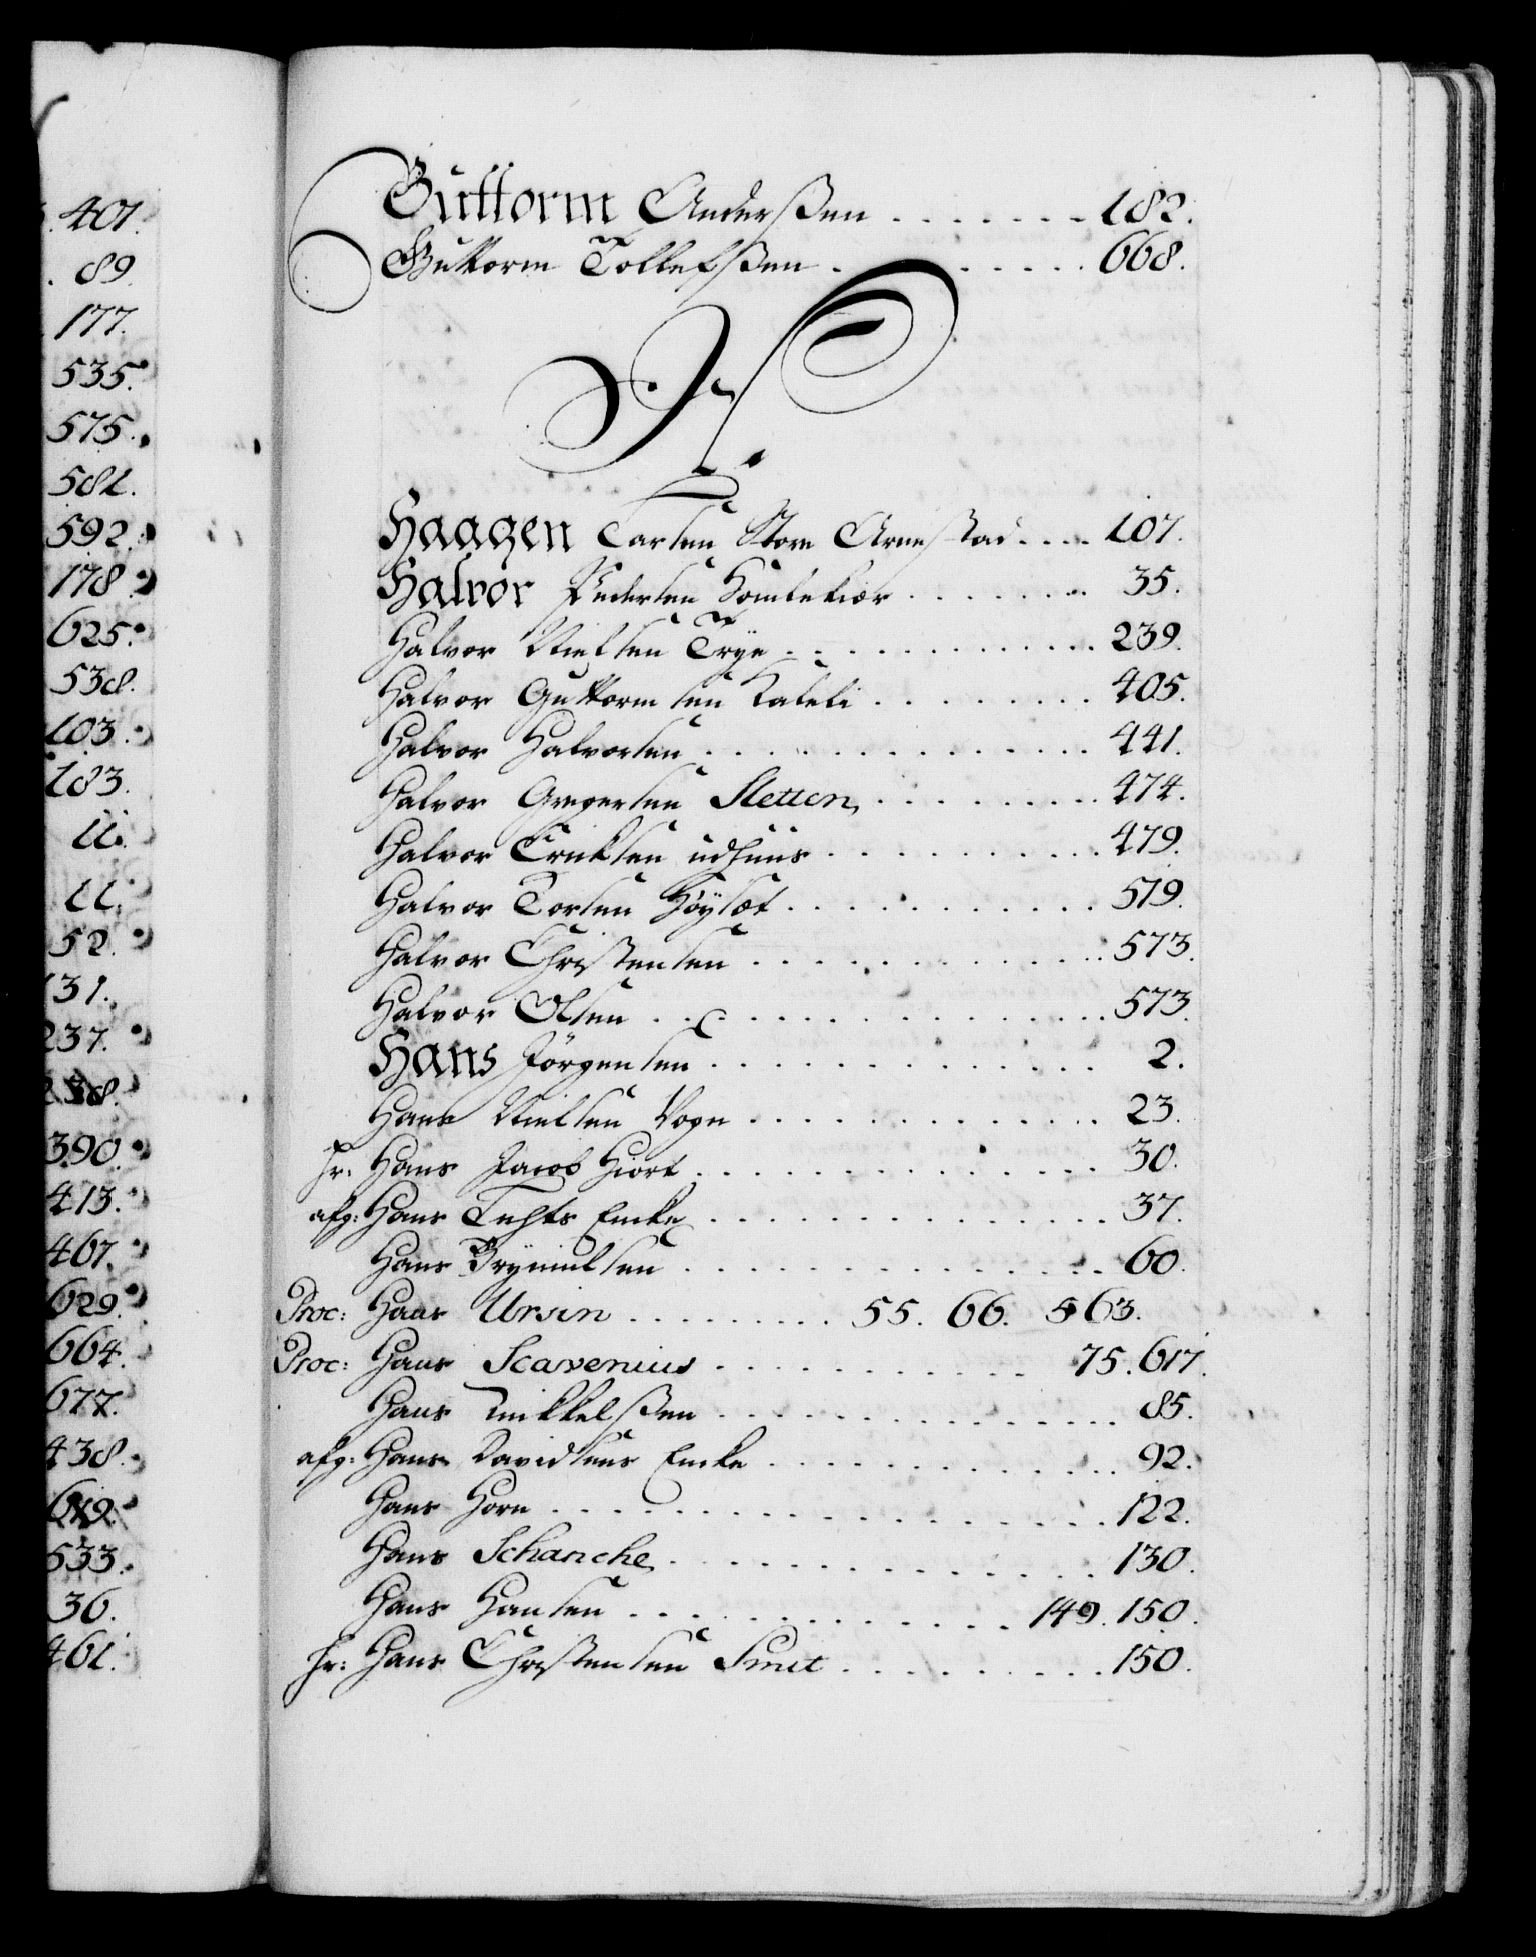 401.
89.
177.
535.
575.
581.
592.
178
625.
538.
103.
183.
11.
11.
52.
131.
237.
238.
390.
413.
467.
629.
664.
677.
438.
619.
533.
36.
461.
Guttorm Anderßen . . . . . . . 182.
Guttorm Tollefsßen . . . . . . . 668.
H.
Haagen Larsen Store Arnestad . . . . 107.
Halvor Pedersen . . . . . . . 35.
Halvor Nielsen Trye . . . . . . . 239.
Halvor Guttormsen Kaleli . . . . . . . 405.
Halvor Halvorsen . . . . . . . 441.
Halvor Gregersen Sletten . . . . . . . 474.
Halvor Ericksen udhuus . . . . . . . 479.
Halvor Torsen Høysæt . . . . . . . 519.
Halvor Christensen . . . . . . . 573.
Halvor Olsen . . . . . . . 573.
Hans Jörgensen . . . . . . . 2.
Hans Nielsen Vogn . . . . . . . 23.
Hr: Hans Jacob Hiort . . . . . . . 30.
afg: Hans Enke . . . . . . . 37.
Hans Brynnilsen . . . . . . . 60.
Proc: Hans Ursin . . . . . . . 55. 66. 563.
Proc: Hans Scavenius . . . . . . . 75. 617.
Hans Mikkelßen . . . . . . . 85.
afg: Hans Davidsens Encke . . . . . . . 92.
Hans Horn . . . . . . . 122.
Hans Schanche . . . . . . . 130.
Hans Hansen . . . . . . . 149. 150.
Hr: Hans Christensen Smit . . . . . . . 150.